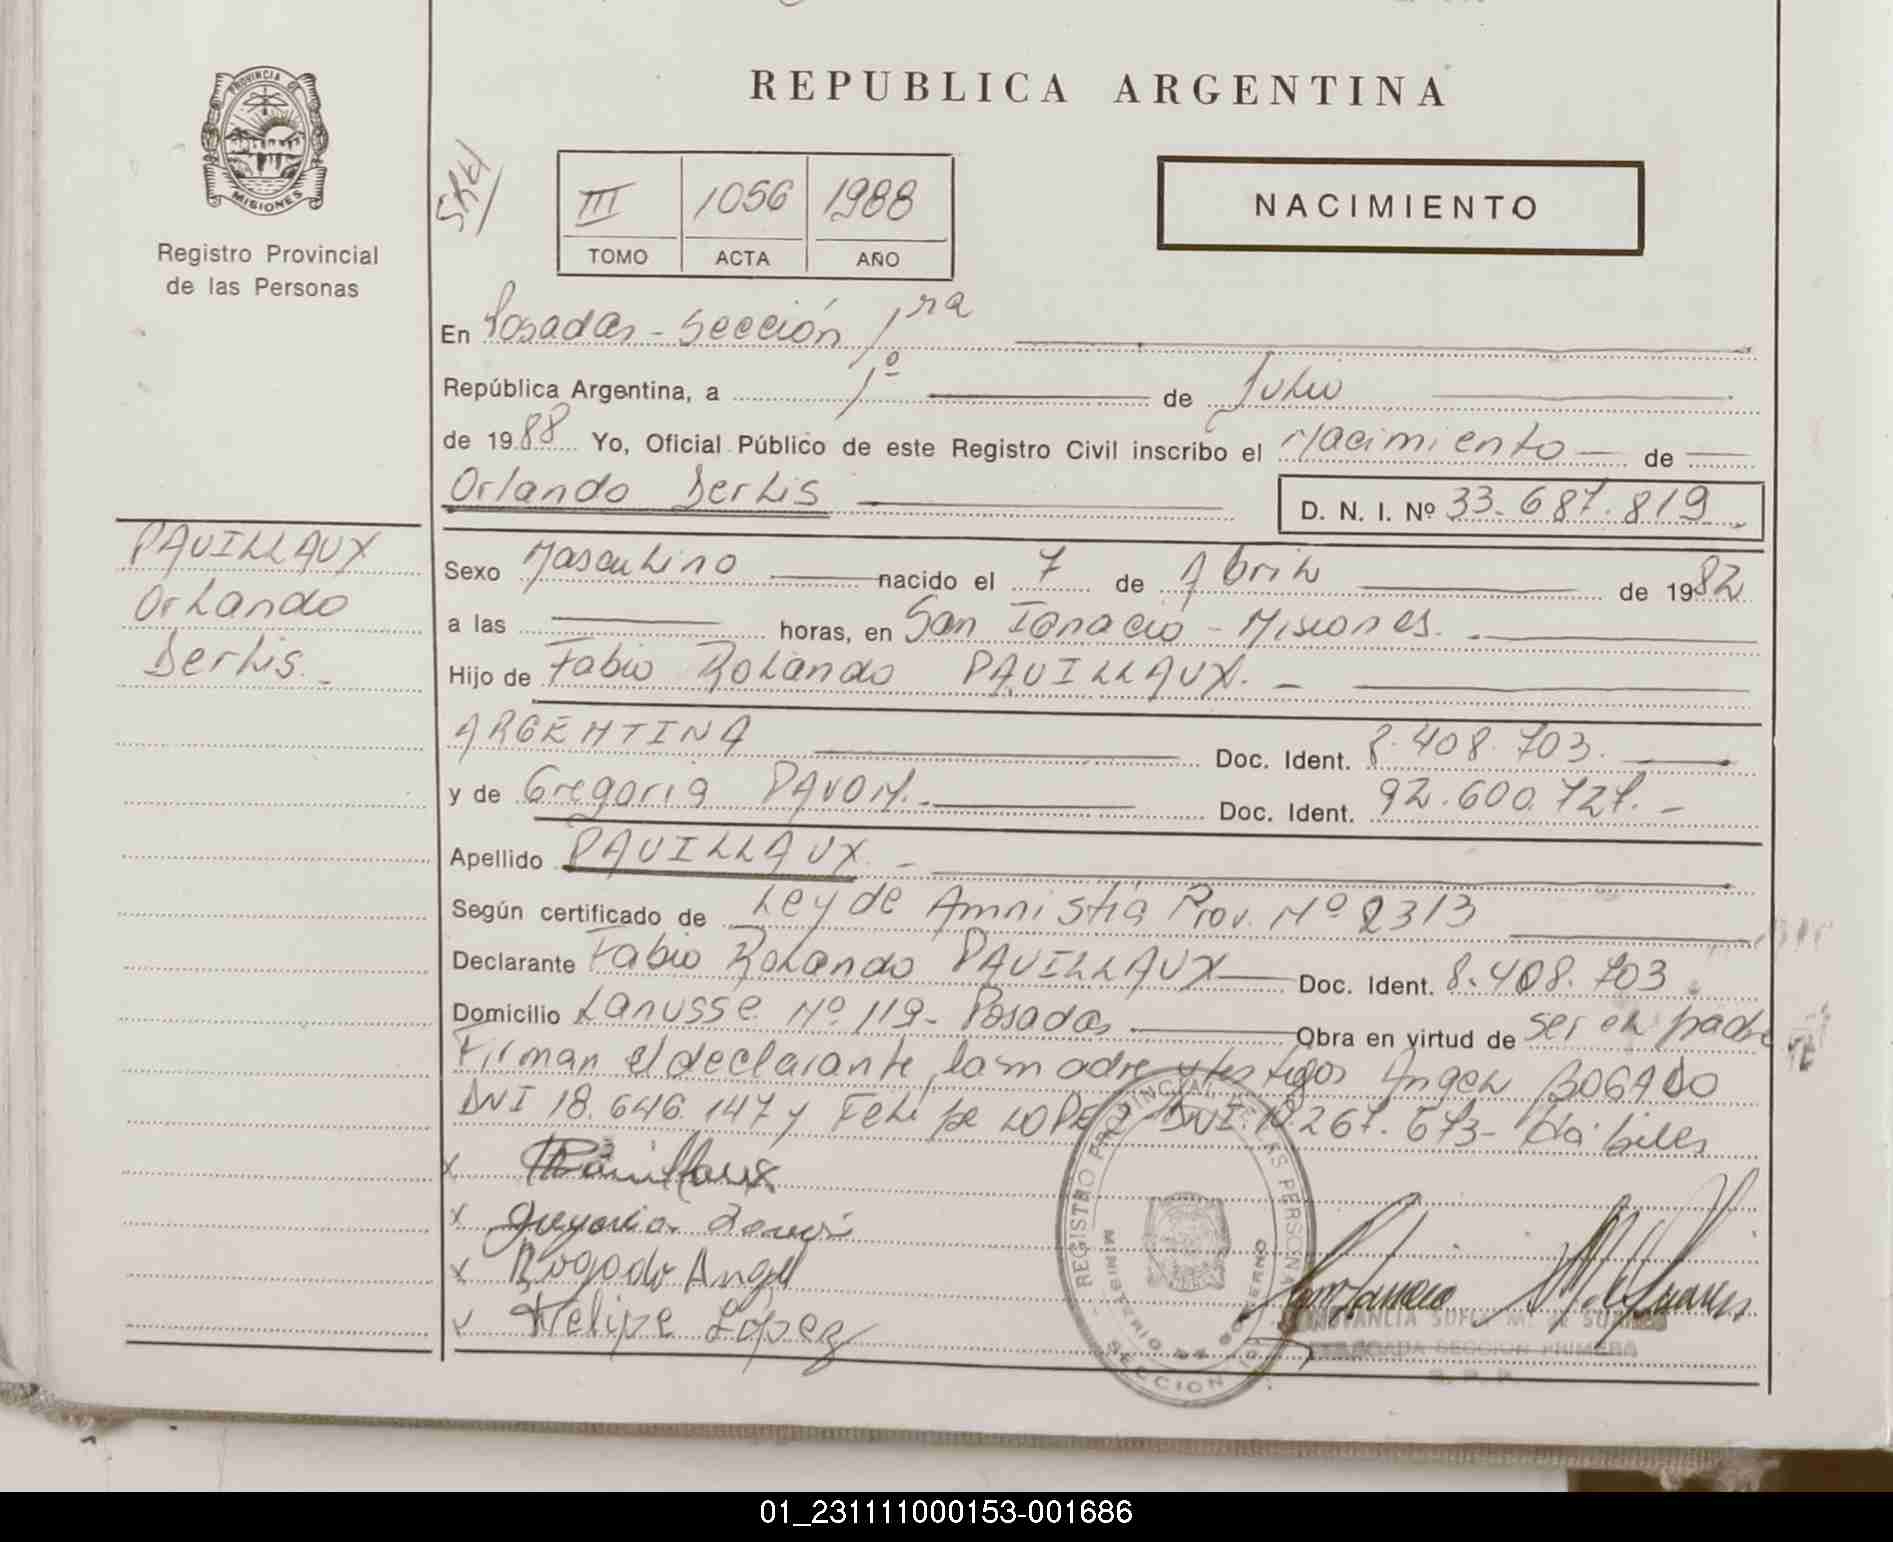 REPUBLICA ARGENTINA
PROVINCIA DE
MISIONES
Registro Provincial
de las Personas
III 1056 1988
TOMO ACTA AÑO
NACIMIENTO
En Posadas - Sección 1ra
República Argentina, a 1º de Julio
de 1988 Yo, Oficial Público de este Registro Civil inscribo el Nacimiento de
Orlando Derlis D. N. I. Nº 33.687.819
PAUILLAUX
Orlando
Derlis.
Sexo Masculino nacido el 7 de Abril de 1982
a las horas, en San Ignacio - Misiones.
Hijo de Fabio Rolando PAUILLAUX.
ARGENTINA Doc. Ident. 8.408.703.
y de Gregoria PAVON. Doc. Ident. 92.600.727.
Apellido PAUILLAUX.
Según certificado de Ley de Amnistia Prov. Nº 2313
Declarante Fabio Rolando PAUILLAUX Doc. Ident. 8.408.703
Domicilio Lanusse Nº 119 - Posadas Obra en virtud de ser el padre
Firman el declarante, la madre y testigos Angel BOGADO
DNI 18.646.147 y Felipe LOPEZ DNI. 267.673 - Hábiles
x
x Gregoria
x Bogado Angel
x Felipe López
REGISTRO PROVINCIAL DE LAS PERSONAS
MINISTERIO DE GOBIERNO
SECCION
SECCION PRIMERA
01_231111000153-001686